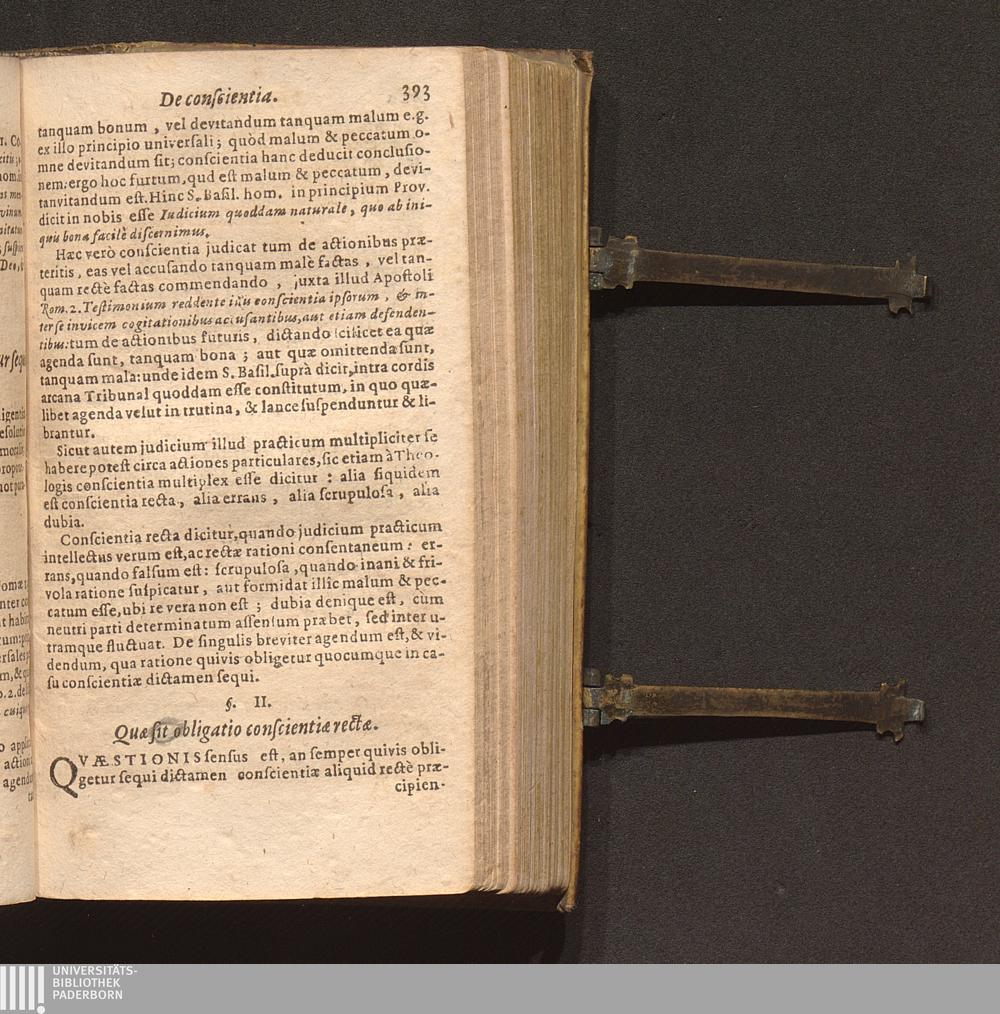 De conſcientia. 393
tanquam bonum, vel devitandum tanquam malum e.g.
ex illo principio univerſali; quòd malum & peccatum o-
mne devitandum ſit; conſcientia hanc deducit concluſio-
nem: ergo hoc furtum, qud eſt malum & peccatum, devi-
tanvitandum eſt. Hinc S. Baſil. hom. in principium Prov.
dicit in nobis eſſe Iudicium quoddam naturale, quo ab ini-
quis bona facilè diſcernimus.
Hæc verò conſcientia judicat tum de actionibus præ-
teritis, eas vel accuſando tanquam malè factas, vel tan-
quam rectè factas commendando, juxta illud Apoſtoli
Rom. 2. Teſtimonium reddente illis conſcientia ipſorum, & in-
ter ſe invicem cogitationibus accuſantibus, aut etiam defenden-
tibus: tum de actionibus futuris, dictando ſcilicet ea quæ
agenda ſunt, tanquam bona; aut quæ omittenda ſunt,
tanquam mala: unde idem S. Baſil. ſuprà dicit, intra cordis
arcana Tribunal quoddam eſſe conſtitutum, in quo quæ-
libet agenda velut in trutina, & lance ſuſpenduntur & li-
brantur.
Sicut autem judicium illud practicum multipliciter ſe
habere poteſt circa actiones particulares, ſic etiam à Theo-
logis conſcientia multiplex eſſe dicitur: alia ſiquidem
eſt conſcientia recta, alia errans, alia ſcrupuloſa, alia
dubia.
Conſcientia recta dicitur, quando judicium practicum
intellectus verum eſt, ac rectæ rationi conſentaneum: er-
rans, quando falſum eſt: ſcrupuloſa, quando inani & fri-
vola ratione ſuſpicatur, aut formidat illîc malum & pec-
catum eſſe, ubi re vera non eſt; dubia denique eſt, cùm
neutri parti determinatum aſſenſum præbet, ſed inter u-
tramque fluctuat. De ſingulis breviter agendum eſt, & vi-
dendum, qua ratione quivis obligetur quocumque in ca-
ſu conſcientiæ dictamen ſequi.
§. II.
Quæ ſit obligatio conſcientiæ rectæ.
QVÆSTIONIS ſenſus eſt, an ſemper quivis obli-
getur ſequi dictamen conſcientiæ aliquid rectè præ-
cipien-
UNIVERSITÄTS-
BIBLIOTHEK
PADERBORN